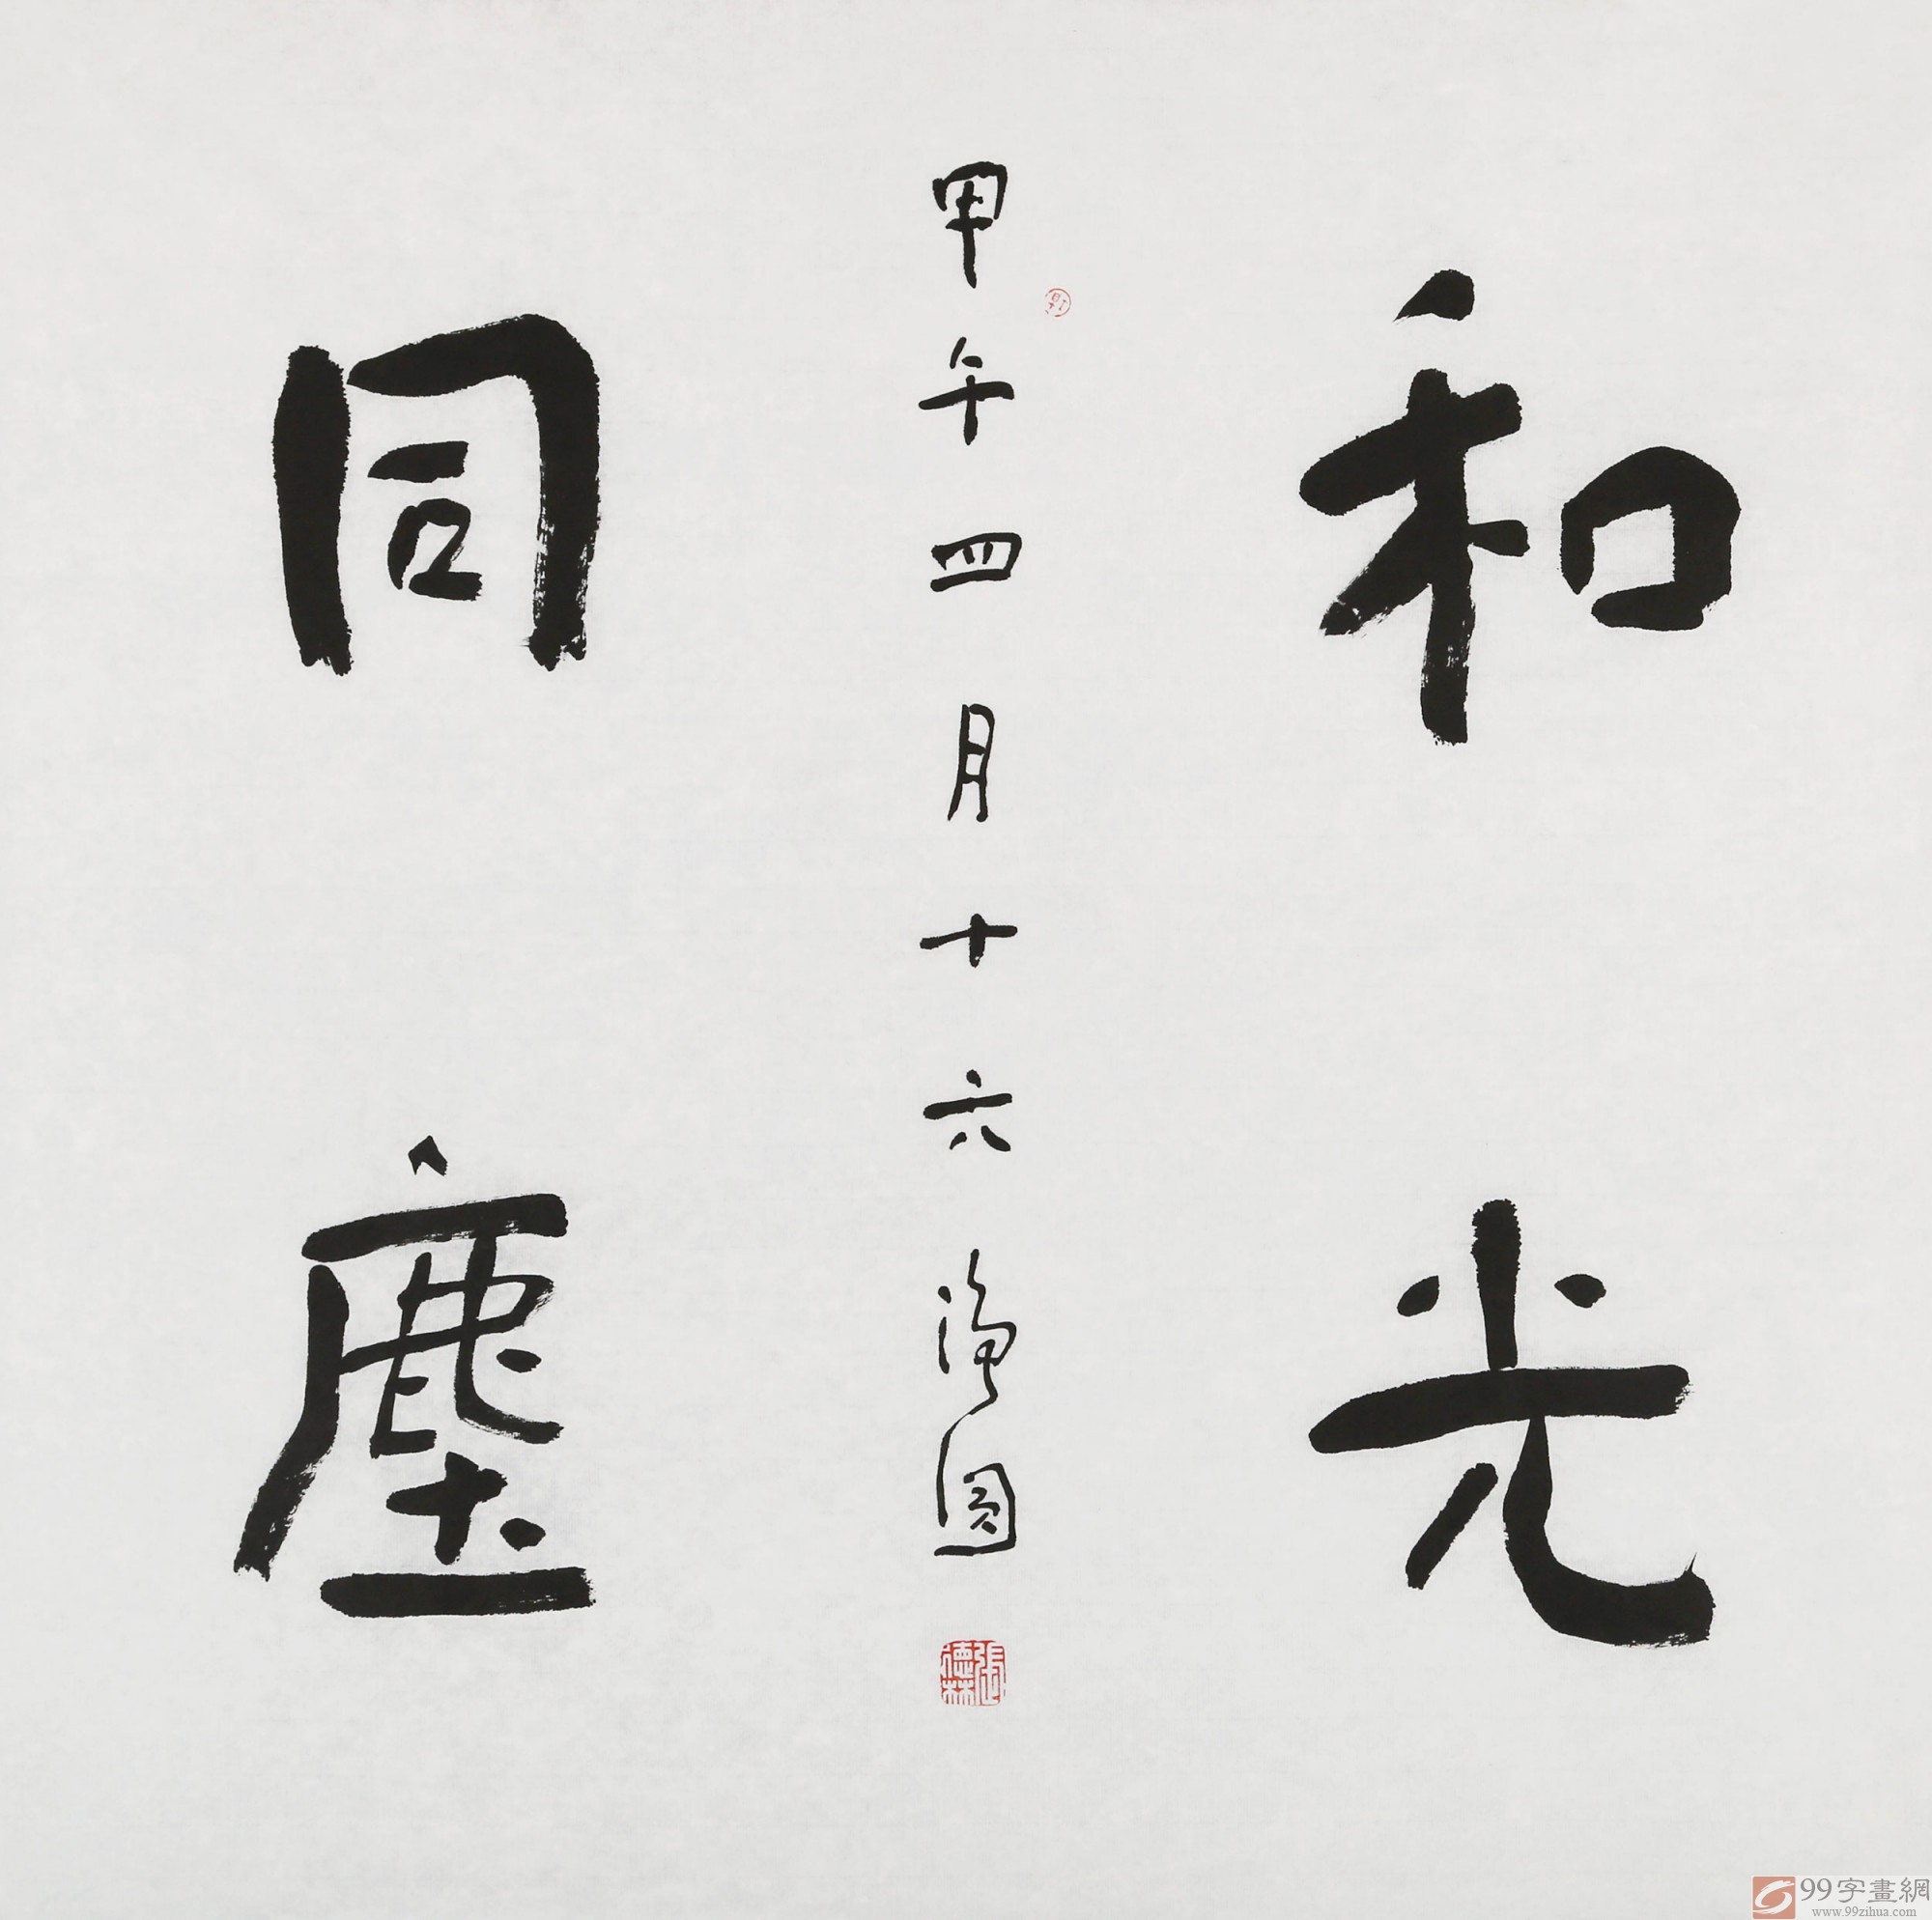 和光
甲午四月十六净圆
同塵
張德林
99字畫網
www.99zihua.com